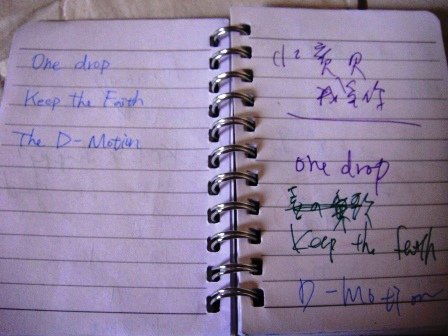 One drop
Keep the Faith
The D-Motion
我等你
one drop
Keep the faith
D-Motion